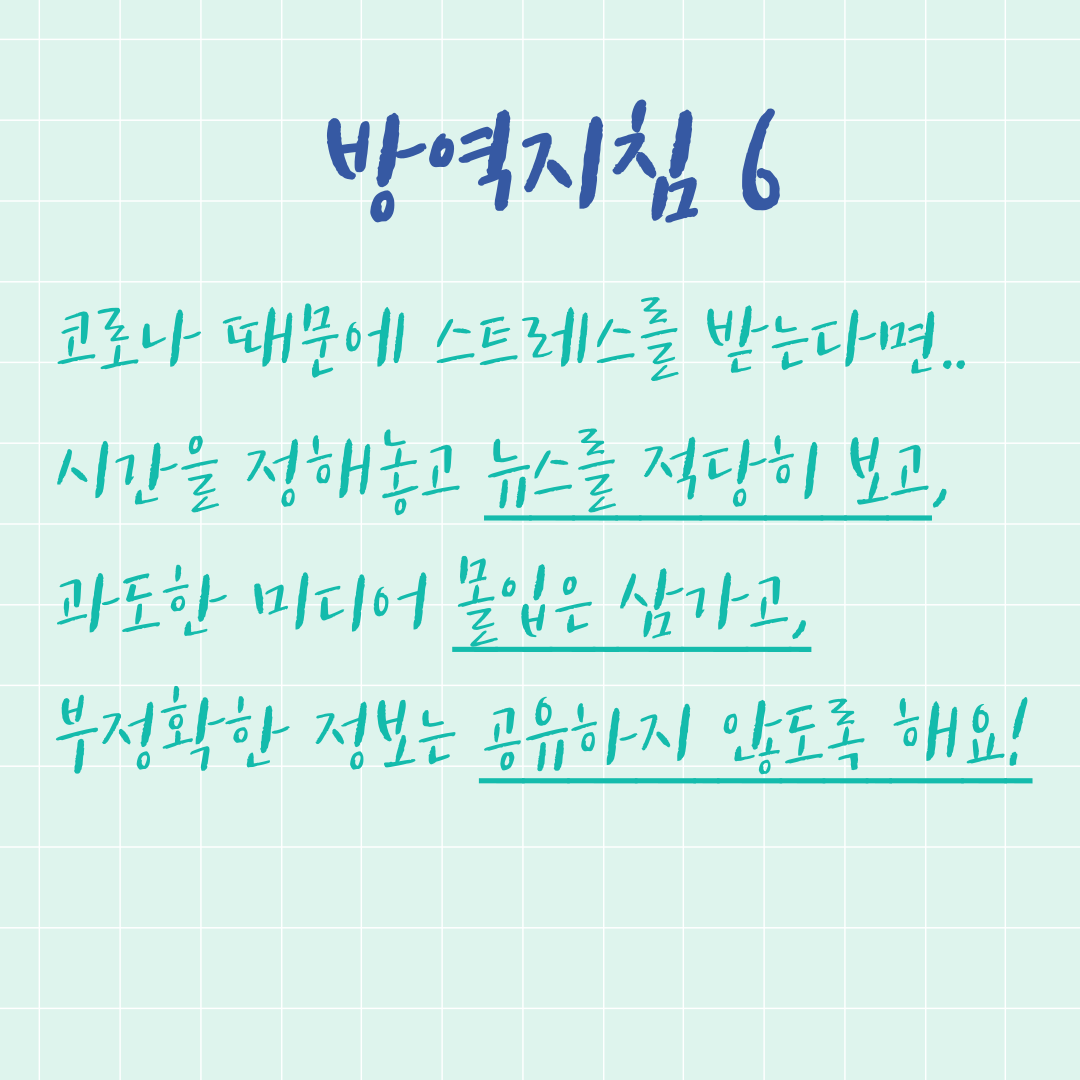 방역지침 6
코로나 때문에 스트레스를 받는다면..
시간을 정해놓고 뉴스를 적당히 보고,
과도한 미디어 몰입은 삼가고,
부정확한 정보는 공유하지 않도록 해요!